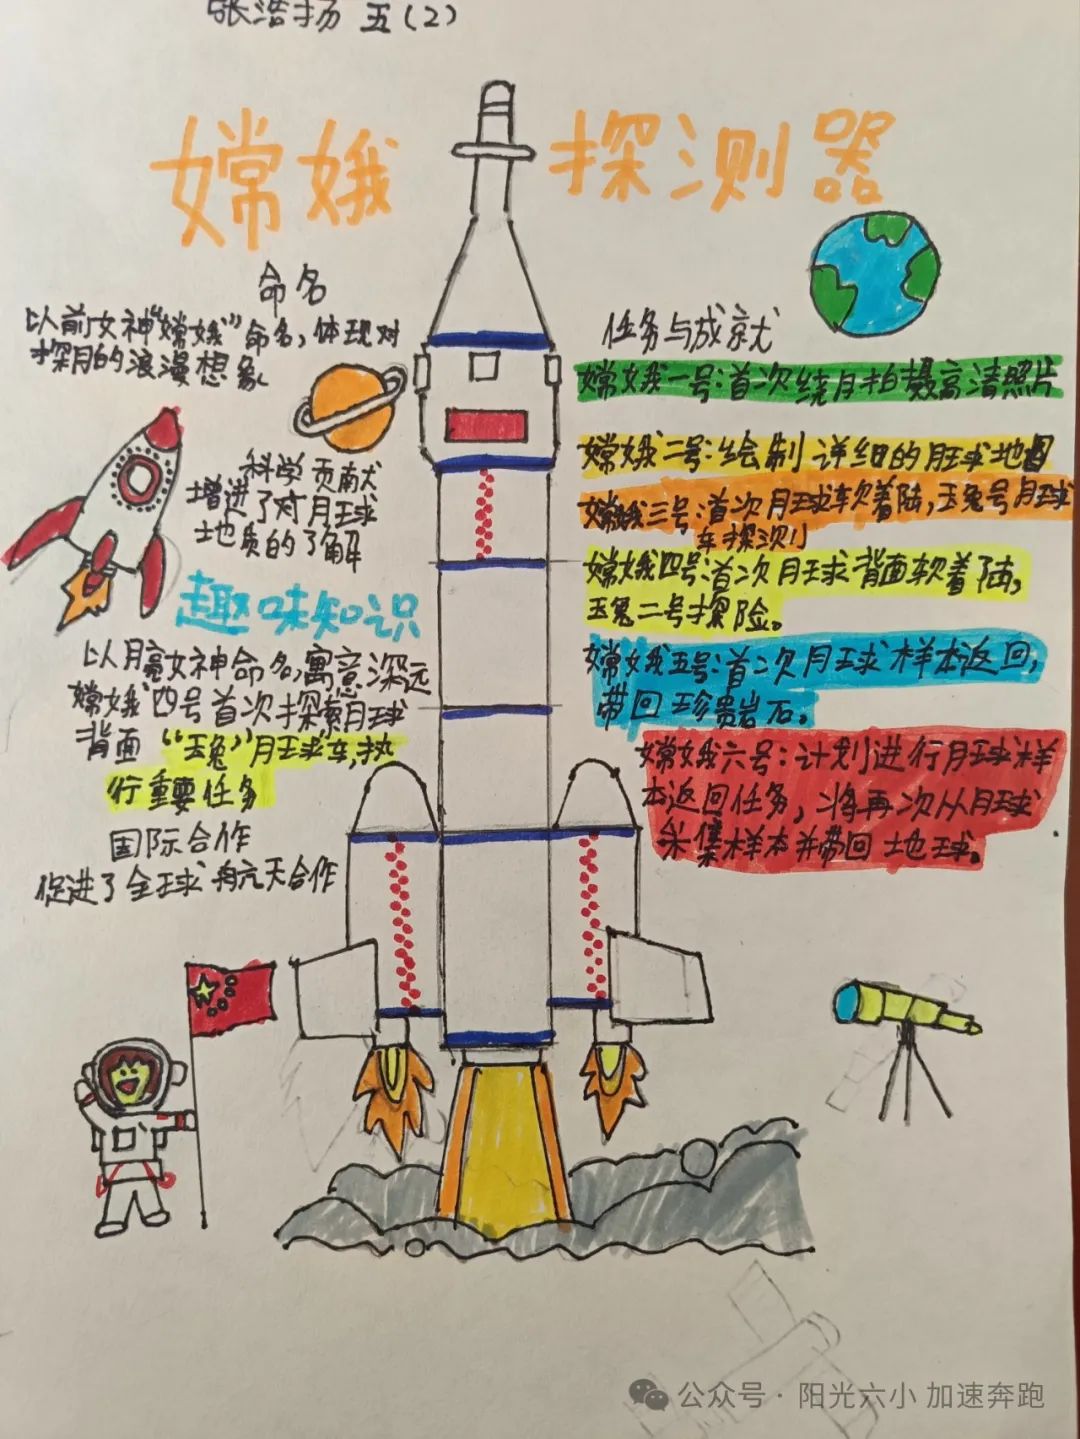 张浩扬 五(2)
嫦娥 探测器
命名
以前女神"嫦娥"命名,体现对
探月的浪漫想象
科学贡献
增进了对月球
地质的了解
趣味知识
以月亮女神命名,寓意深远
嫦娥四号首次探索月球
背面"玉兔"月球车,执
行重要任务
国际合作
促进了全球航天合作
任务与成就
嫦娥一号:首次绕月拍摄高清照片
嫦娥二号:绘制详细的月球地图
嫦娥三号:首次月球软着陆,玉兔号月球
车探测
嫦娥四号:首次月球背面软着陆,
玉兔二号探险。
嫦娥五号:首次月球样本返回,
带回珍贵岩石。
嫦娥六号:计划进行月球样
本返回任务,将再次从月球
采集样本并带回地球。
公众号·阳光六小 加速奔跑